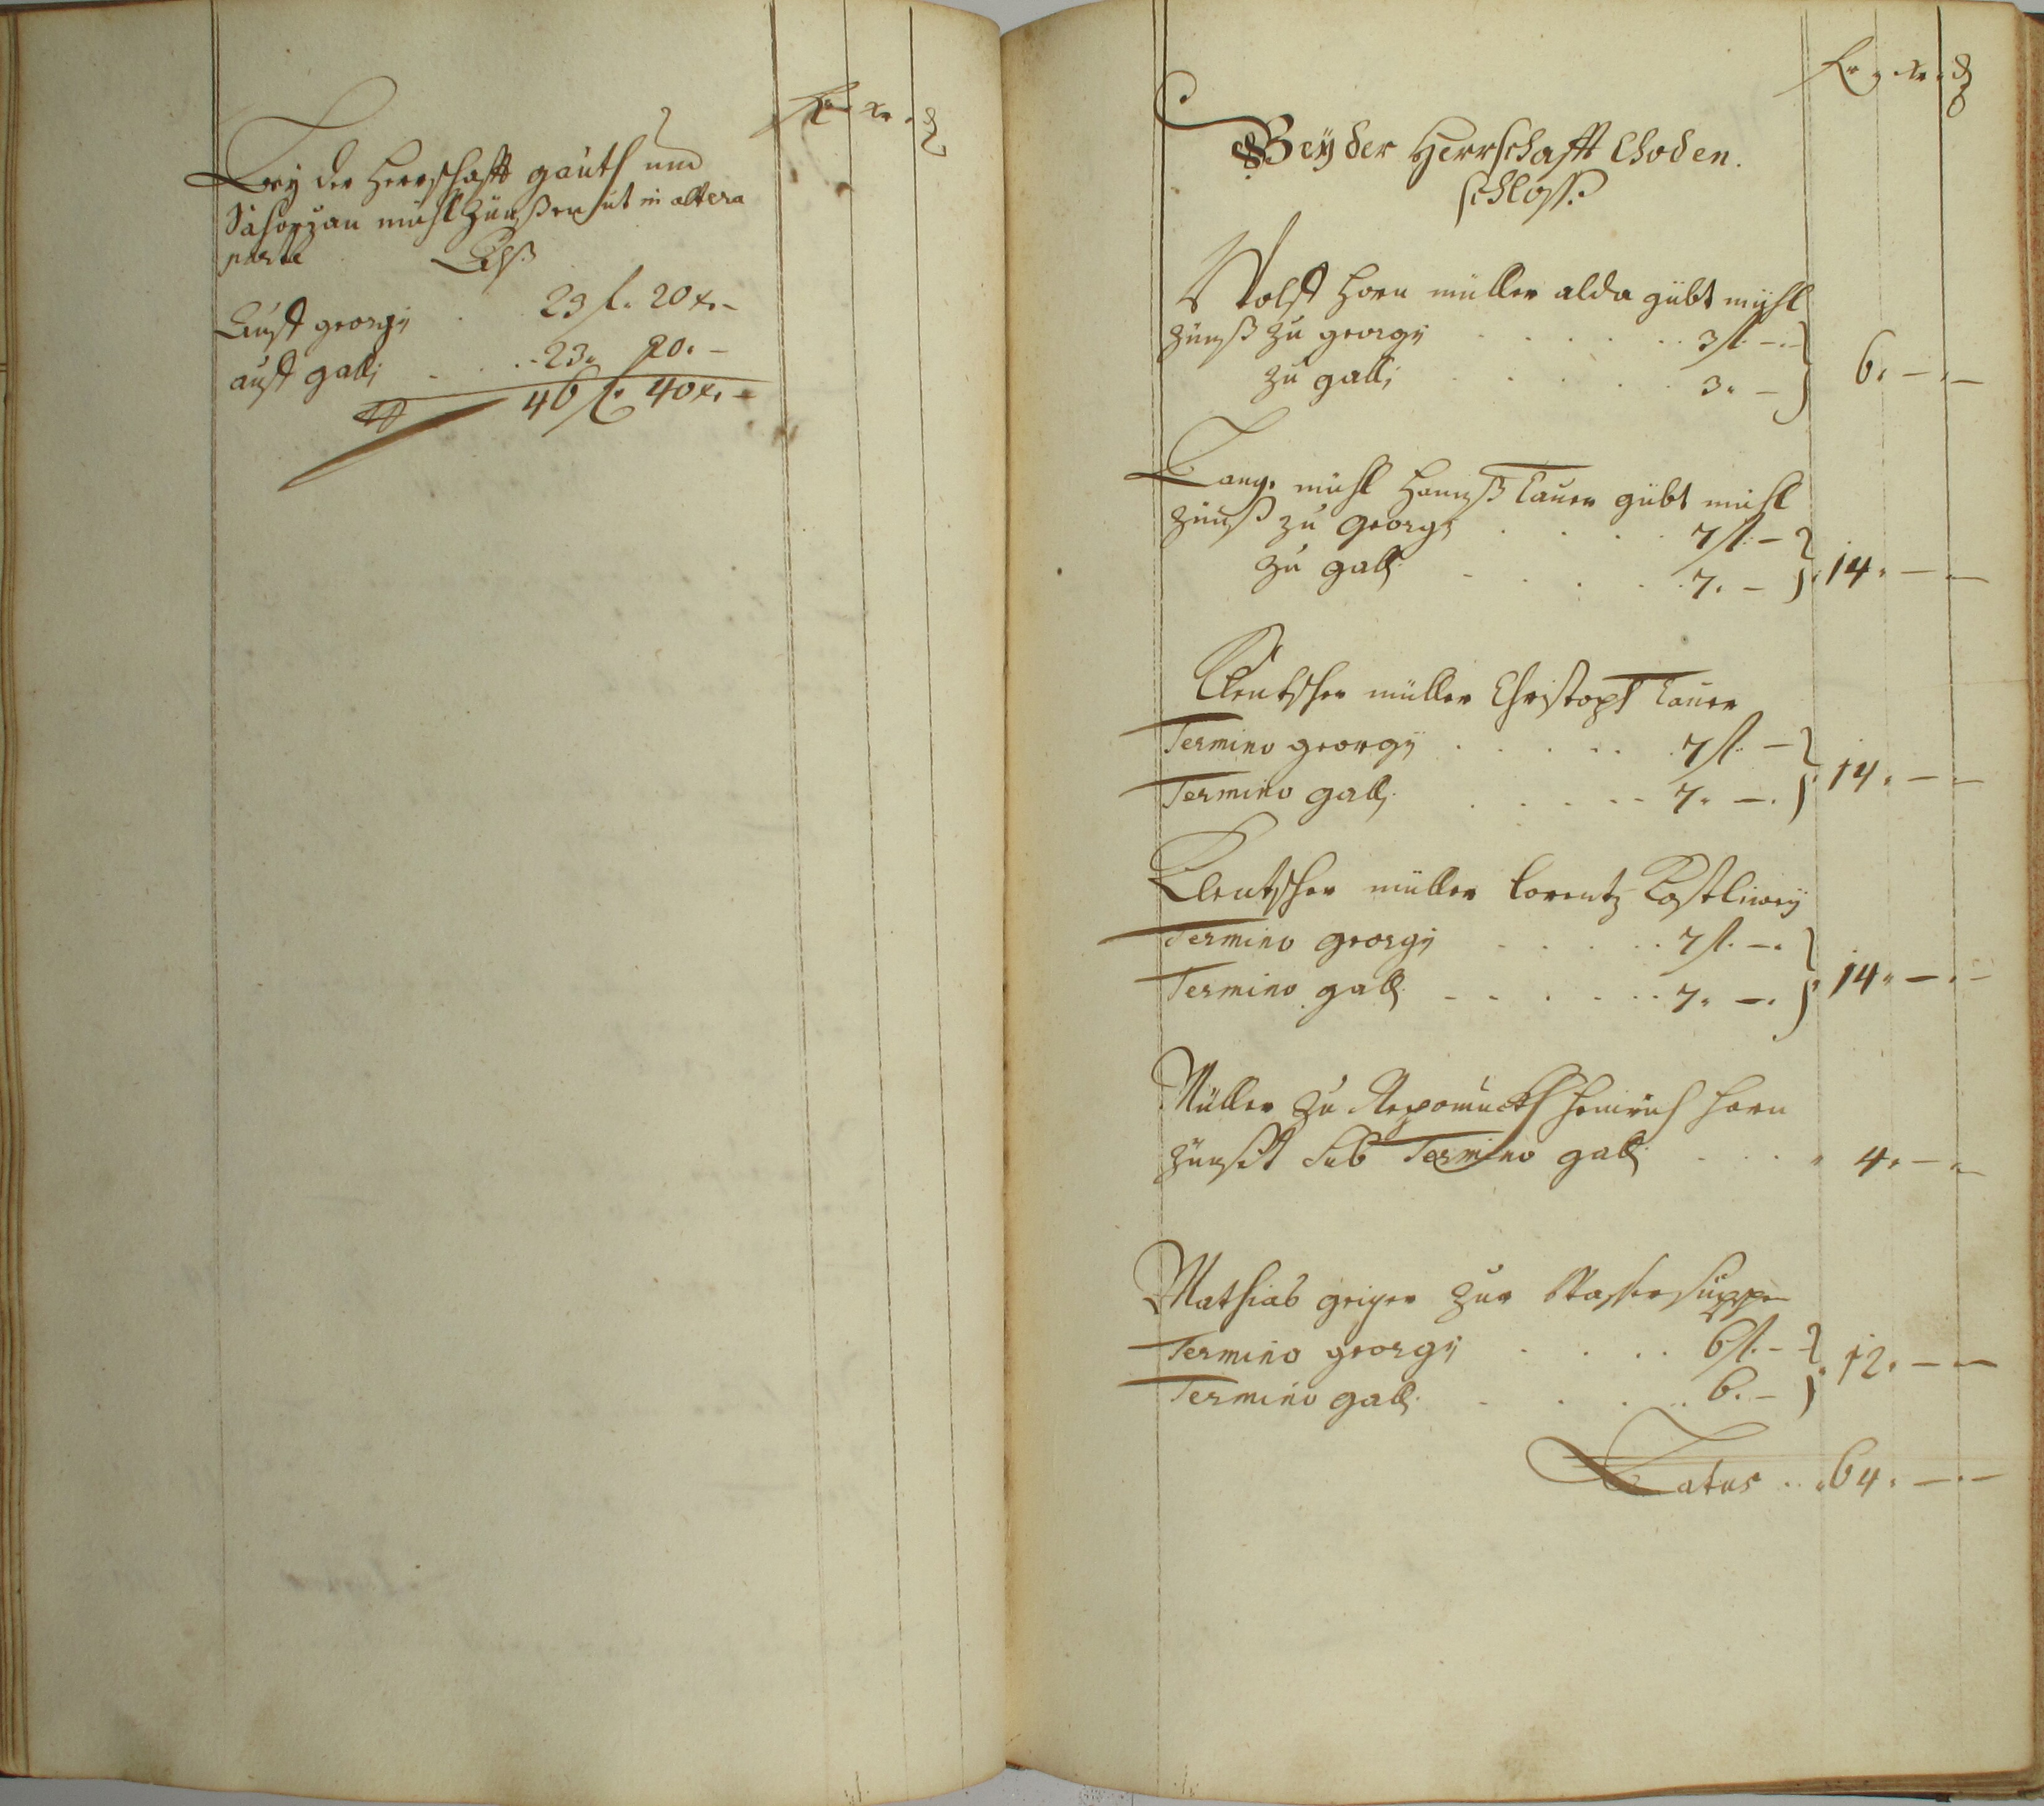 fl. xr. ₰
Bey der Herrschafft Gauth und
Sahorzan mühl Zünßen ut in altera
parte
Auff georgij . 23 fl. 20 xr. –
auff galli . . 23. 20. –
46 fl. 40 xr. –
fl. xr. ₰
Bey der Herrschafft Choden.
schloss.
Wolff Horn müller alda gübt mühl
Zünß Zu georgij . . . . . . 3 fl. –
Zu galli . . . . . 3. – 6. – –
Lang. mühl Hannß Bauer gübt mühl
Zünß Zu Georgi . . . . 7 fl. –
Zu galli . . . . . 7. – 14. – –
Klentscher müller Christoph Bauer
Termino georgij . . . . . 7 fl. –
Termino galli . . . . . 7. – 14. – –
Klentscher müller Lorentz Kostliweÿ
Termino georgij . . . . . 7 fl. –
Termino galli . . . . . . 7. – 14. – –
Müller Zu Nepomuckh Heinrich Horn
Zünset Sub Termino galli . . . . 4. – –
Mathias geiger Zur Wassersuppen
Termino georgij . . . . . 6 fl. –
Termino galli . . . . . 6. – 12. – –
Latus . . 64. – –